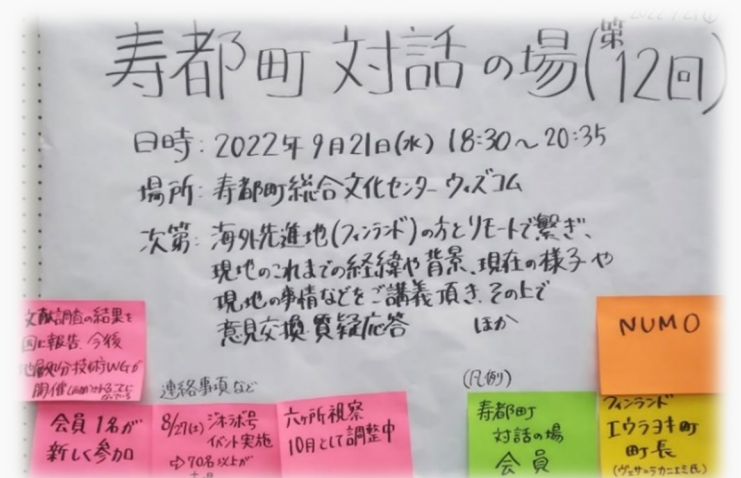 寿都町 対話の場(第12回)
日時: 2022年9月21日(水) 18:30～20:35
場所: 寿都町総合文化センター ウィズコム
次第: 海外先進地(フィンランド)の方とリモートで繋ぎ、
現地のこれまでの経緯や背景、現在の様子や
現地の事情などをご講義頂き、その上で
意見交換・質疑応答 ほか
文献調査の結果を
国に報告、今後
技術WGが
開催
連絡事項など
会員1名が
新しく参加
8/27(土) ジオラボ号
イベント実施
⇨70名以上が
六ヶ所視察
10月として調整中
(凡例)
寿都町
対話の場
会員
NUMO
フィンランド
エウラヨキ町
町長